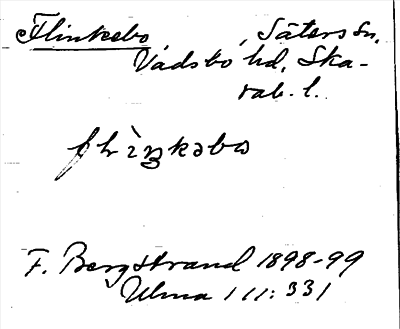 Flinkebo, Säters sn,
Vadsbo hd, Ska-
rab. l.
F. Bergstrand 1898-99
Ulma 111:331